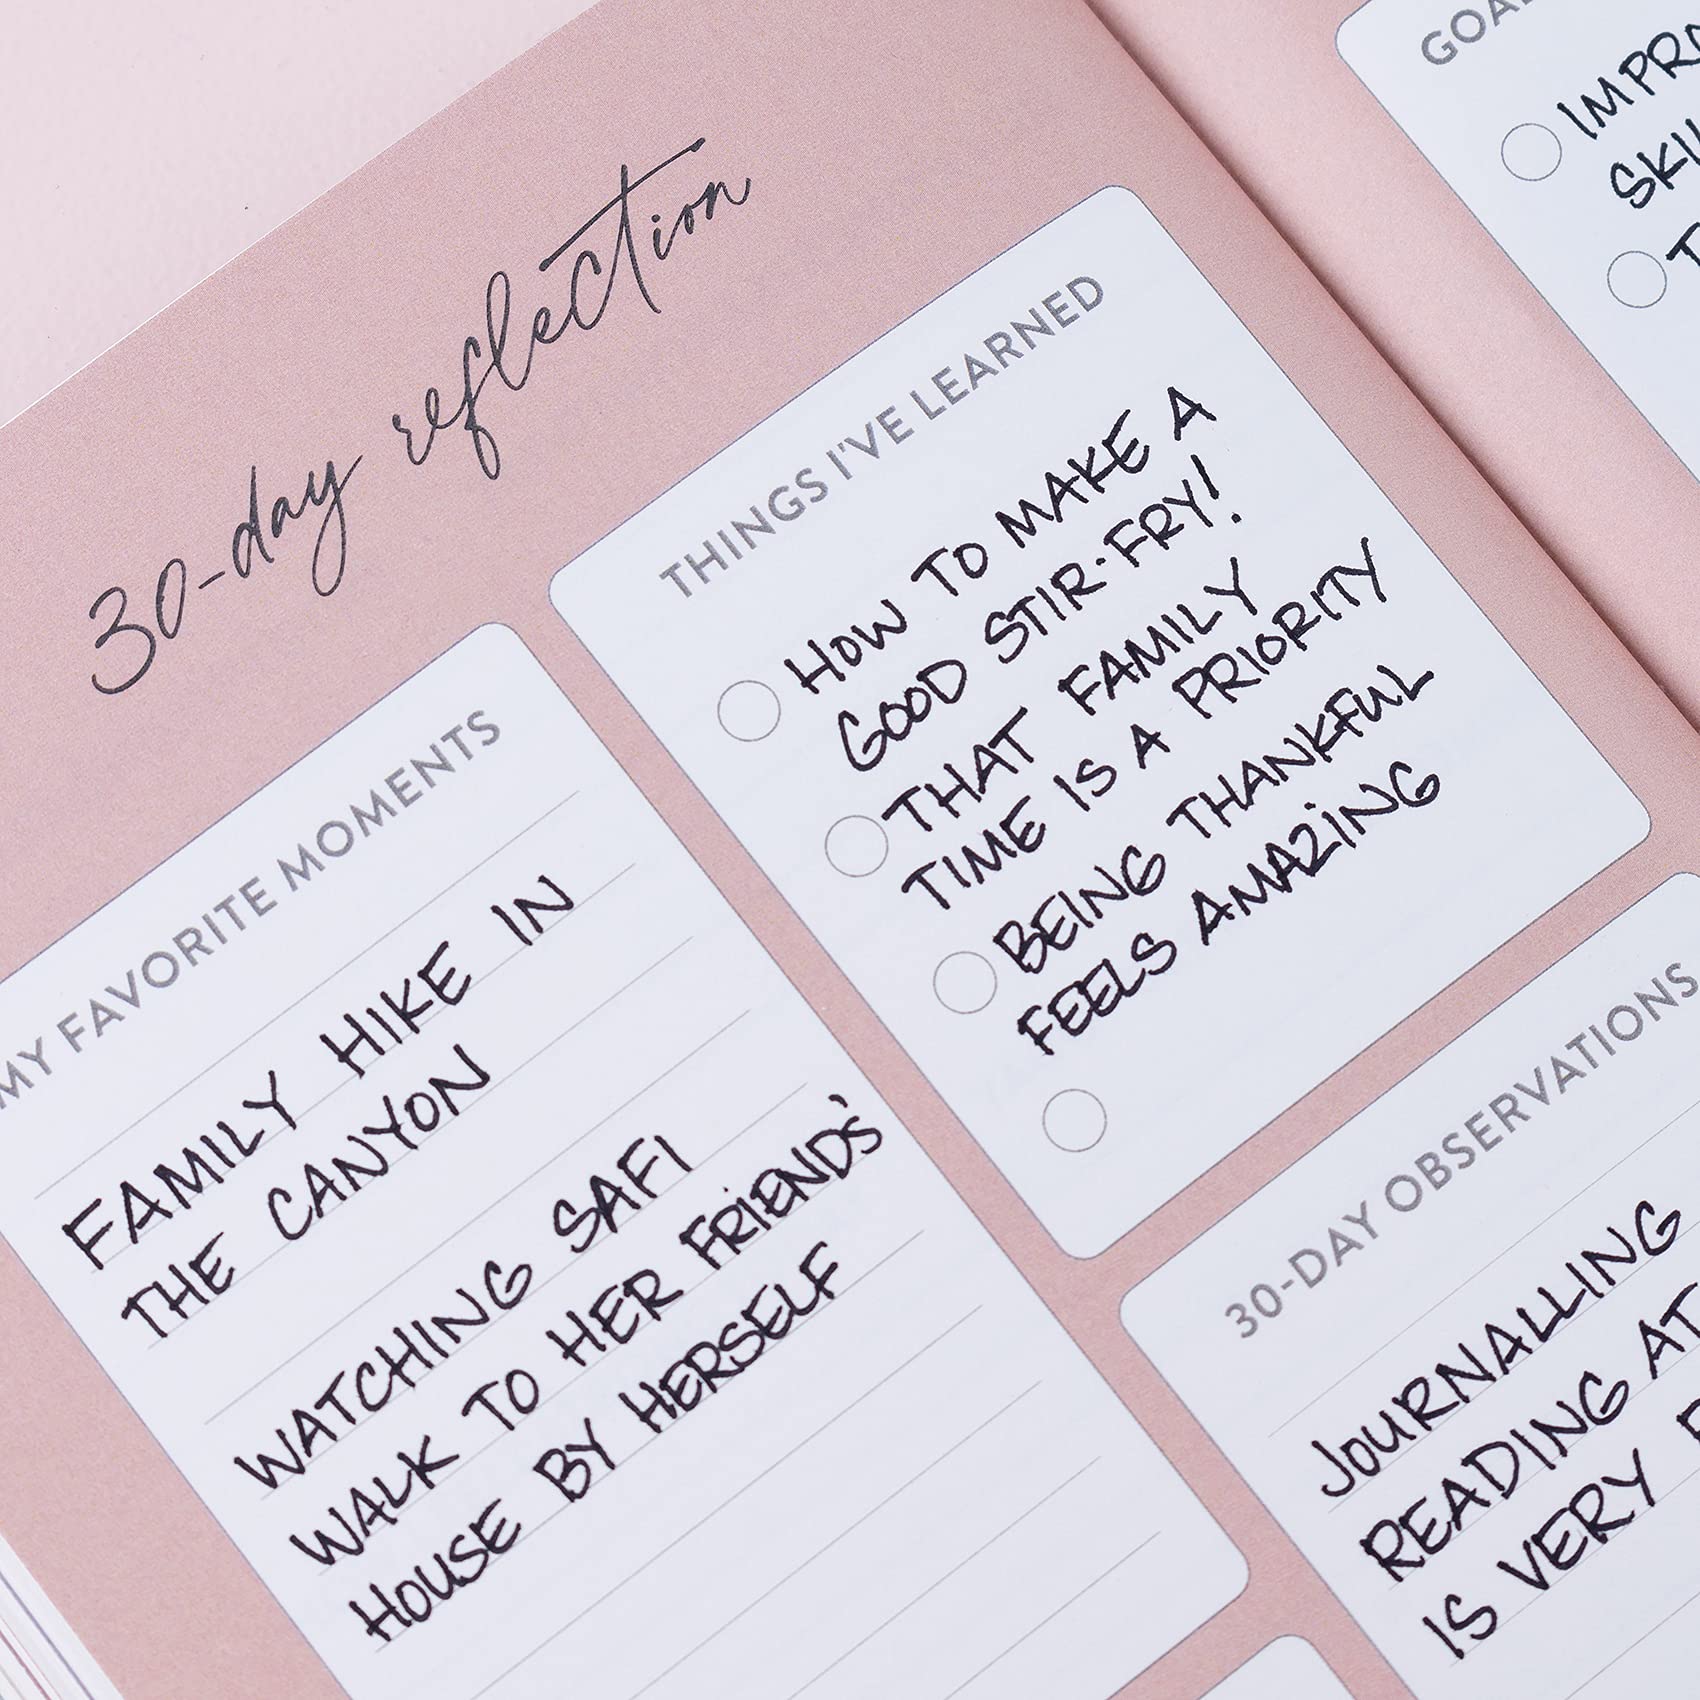 30-day reflection
MY FAVORITE MOMENTS
FAMILY HIKE IN
THE CANYON
WATCHING SAFI
WALK TO HER FRIENDS'
HOUSE BY HERSELF
THINGS I'VE LEARNED
HOW TO MAKE A
GOOD STIR-FRY!
THAT FAMILY
TIME IS A PRIORITY
BEING THANKFUL
FEELS AMAZING
30-DAY OBSERVATIONS
JOURNALLING
READING AT
IS VERY